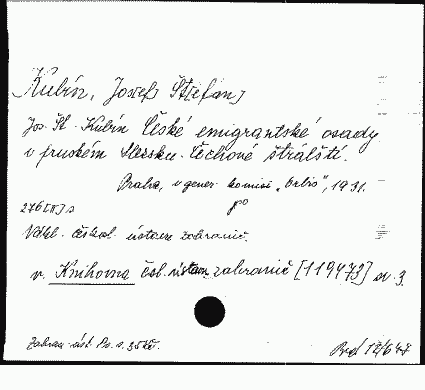 Kubín, Josef Štefan,
Jos. Št. Kubín České emigrantské osady
v pruském Slezsku. Čechové štrálští.
Praha, v gener. komisi „Orbis", 1931.
8°
276 [II] s
Vydal. českosl. ústavem zahranič.
v. Knihovna čsl. ústavu zahranič [119473] sv. 3.
Zahran. úst. Pr. s. 35 Kč.